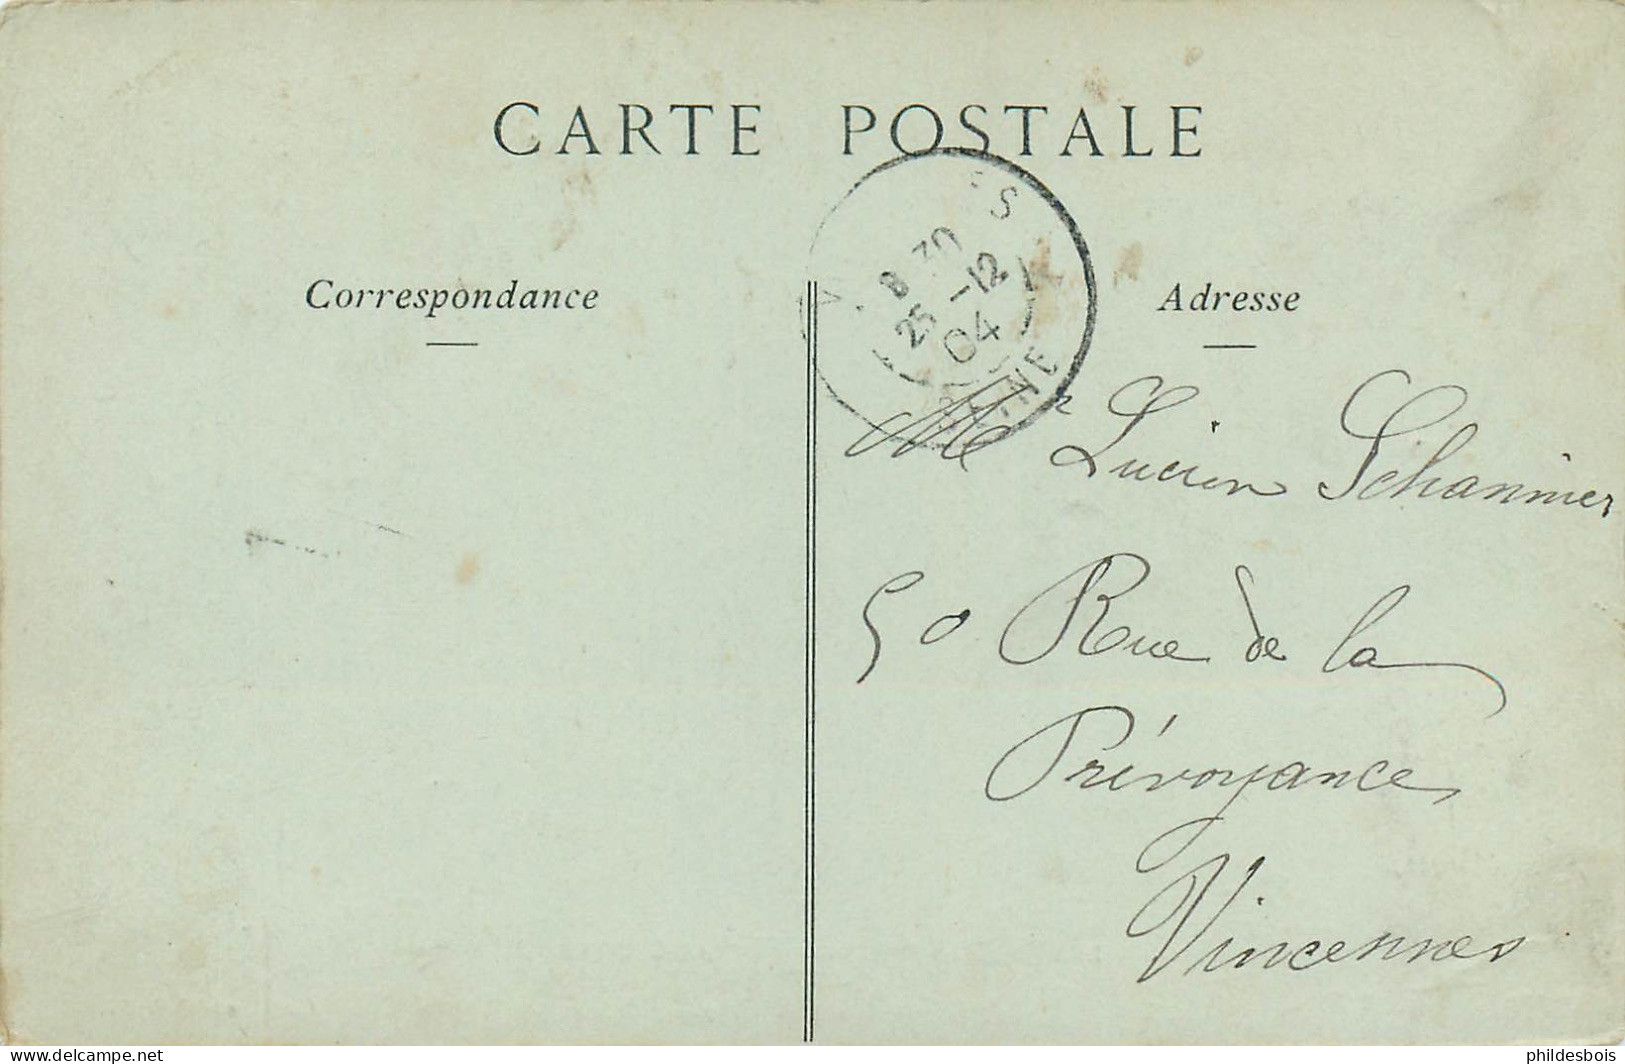 CARTE POSTALE
Correspondance
Adresse
V ES
8 30
25 -12
04
SEINE
Mr Lucien Schanner
50 Rue de la
Prévoyance
Vincennes
www.delcampe.net
phildesbois